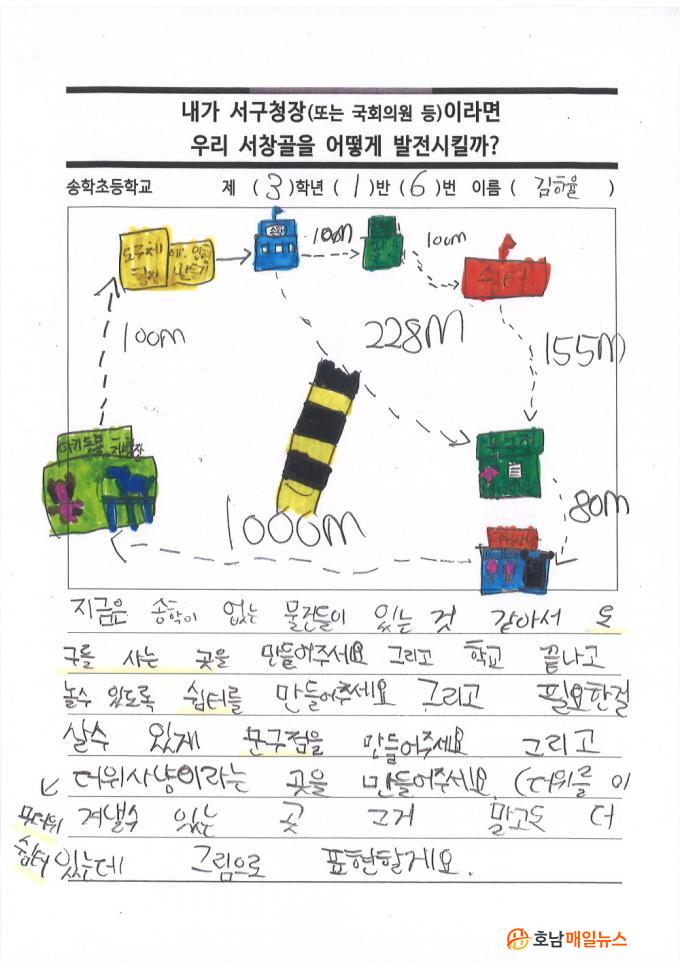 내가 서구청장(또는 국회의원 등)이라면
우리 서창골을 어떻게 발전시킬까?
송학초등학교 제 (3)학년 (1)반 (6)번 이름 ( 김하율 )
100m
100m
쉼터
만들기
100m
228M
155M
아기동물
80M
1000m
지금은 송학이 없는 물건들이 있는 것 같아서 도
구를 사는 곳을 만들어주세요 그리고 학교 끝나고
놀수 있도록 쉼터를 만들어주세요 그리고 필요한걸
살수 있게 문구점을 만들어주세요 그리고
더위사냥이라는 곳을 만들어주세요. (더위를 이
무더위 겨낼수 있는 곳 그거 말고도 더
쉼터 있는데 그림으로 표현할게요.
호남매일뉴스